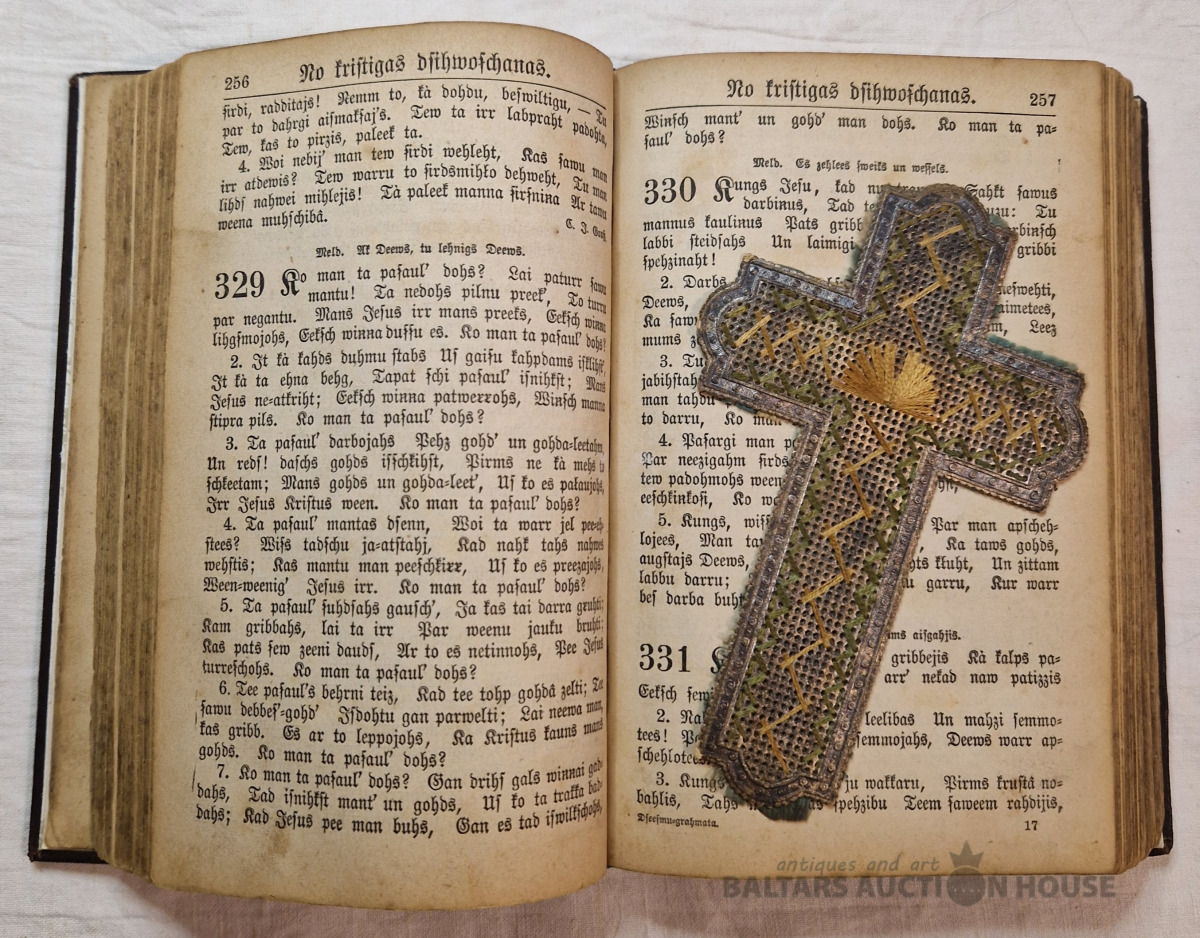 256 No kristigas dsihwoschanas.
sirdi, radditajs! Nemm to, kà dohdu, beswiltigu, — Tu
par to dahrgi aismaksaj's. Tew ta irr labpraht padohta,
Tew, kas to pirzis, paleek ta.
4. Woi nebij' man tew sirdi wehleht, Kas sawu man
irr atdewis? Tew warru to sirdsmihło dehweht, Tu man
lihds nahwei mihlejis! Tà paleek manna sirsnina Ar tawu
weena muhschibâ.
C. J.
Meld. Ak Deews, tu lehnigs Deews.
329 Ko man ta pasaul' dohs? Lai paturr sawu
mantu! Ta nedohs pilnu preek', To turru
par negantu. Mans Jesus irr mans preeks, Eeksch winna
lihgsmojohs, Eeksch winna dussu es. Ko man ta pasaul' dohs?
2. It kà kahds duhmu stabs Us gaisu kahpdams isklihst,
It kà ta ehna behg, Tapat schi pasaul' isnihkst; Mans
Jesus ne=atkriht; Eeksch winna patwerrohs, Winsch manna
stipra pils. Ko man ta pasaul' dohs?
3. Ta pasaul' darbojahs Pehz gohd' un gohda=leetahm,
Un reds! daschs gohds isschkihst, Pirms ne kà mehs to
schkeetam; Mans gohds un gohda=leet', Us ko es palaujohs,
Irr Jesus Kristus ween. Ko man ta pasaul' dohs?
4. Ta pasaul' mantas dsenn, Woi ta warr jel pee=eh=
stees? Wiss tadschu ja=atstahj, Kad nahk tahs nahwes
wehstis; Kas mantu man peeschkirr, Us ko es preezajohs,
Ween=weenig' Jesus irr. Ko man ta pasaul' dohs?
5. Ta pasaul' suhdsahs gausch', Ja kas tai darra gruhti;
Kam gribbahs, lai ta irr Par weenu jauku bruhti;
Kas pats sew zeeni dauds, Ar to es netinnohs, Pee Jesu
turreschohs. Ko man ta pasaul' dohs?
6. Tee pasaul's behrni teiz, Kad tee tohp gohdâ zelti; Tee
sawu debbes'=gohd' Isdohtu gan parwelti; Lai neewa man,
kas gribb. Es ar to leppojohs, Ka Kristus kauns mans
gohds. Ko man ta pasaul' dohs?
7. Ko man ta pasaul' dohs? Gan drihs gals winnai gad=
dahs, Tad isnihkst mant' un gohds, Us ko ta trakka bad=
dahs; Kad Jesus pee man buhs, Gan es tad iswilkschohs,
No kristigas dsihwoschanas. 257
Winsch mant' un gohd' man dohs. Ko man ta pa=
saul' dohs?
Meld. Es zehlees sweiks un wessels.
330 Kungs Jesu, kad Sahkt sawus
darbinus, Tad Tu
mannus kaulinus Pats gribb
labbi steidsahs Un laimigi gribbi
spehzinaht!
2. Darbs
Deews,
Ka saw Leez
mums
3. Tu
jabihstah
man tahdu
to darru, Ko man
4. Pasargi man
Par neezigahm sirds
tew padohmohs ween
eeschkinkosi, Ko
5. Kungs, Par man apscheh=
lojees, Man Ka taws gohds,
augstajs Deews, kluht, Un zittam
labbu darru; garru, Kur warr
bes darba buht
aisgahjis.
331 gribbejis Kà kalps pa=
Eeksch arr' nekad naw patizzis
2. leelibas Un mahzi semmo=
tees! semmojahs, Deews warr ap=
schehlotees.
3. Kungs wakkaru, Pirms krustâ no=
bahlis, Tahs spehzibu Teem saweem rahdijis,
Dseesmu=grahmata. 17
antiques and art
BALTARS AUCTION HOUSE